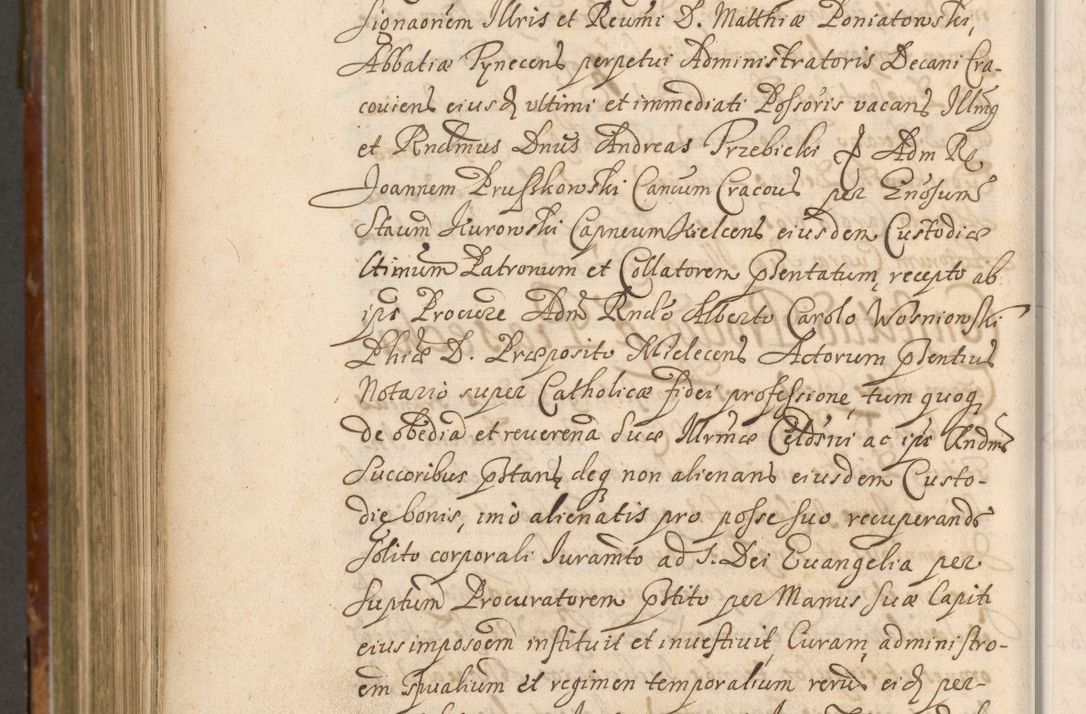 signaonem Illris et Reumi D. Matthiæ Poniatowski,
Abbatiæ Tynecens perpetui Administratoris Decani Cra-
coviens eiusd ultimi et immediati Possoris vacans Illmg
et Rndmus Dnus Andreas Przebicki Adm R
Joannem Pruszkowski Cancum Cracovs per Enosum
Staum Kurowski Capneum Kielcens eiusdem Custodiæ
ltimum Patronum et Collatorem psentatum, recepto ab
ips Procure Adm Rndo Alberto Carolo Wosniowski
Phiæ D. Præposito Mielecens Actorum psentius
Notario super Catholicæ fidei professione, tum quoq
de obedia et reverena suæ Illrmæ Celdsni ac ips Andms
Succoribus pstans, deq non alienans eiusdem Custo-
die bonis, imo alienatis pro posse suo recuperands
solito corporali Iuramto ad S. Dei Evangelia per
suptum Procuratorem pstito per Manus suæ Capiti
eius imposoem instituit et investivit, Curam administro-
em spualium et regimen temporalium rerus eid per-